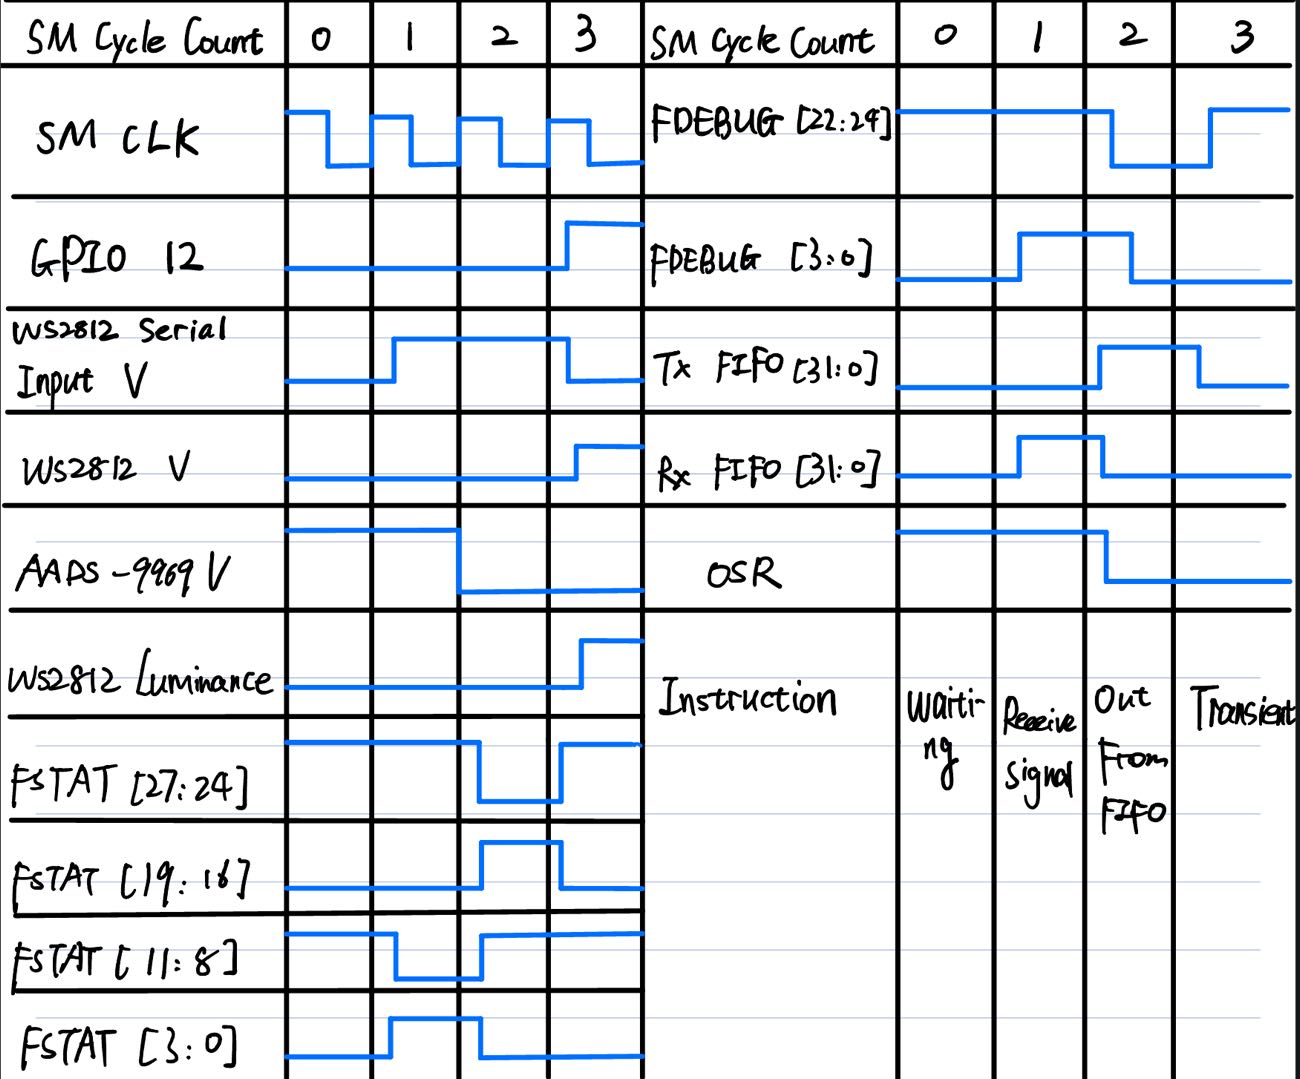 SM Cycle Count 0 1 2 3
SM CLK
GPIO 12
WS2812 Serial
Input V
WS2812 V
AADS-9969 V
WS2812 Luminance
FSTAT [27:24]
FSTAT [19:16]
FSTAT [11:8]
FSTAT [3:0]
SM Cycle Count 0 1 2 3
FDEBUG [22:24]
FDEBUG [3:0]
Tx FIFO [31:0]
Rx FIFO [31:0]
OSR
Instruction
Waiti-
ng
Receive
signal
Out
From
FIFO
Transient